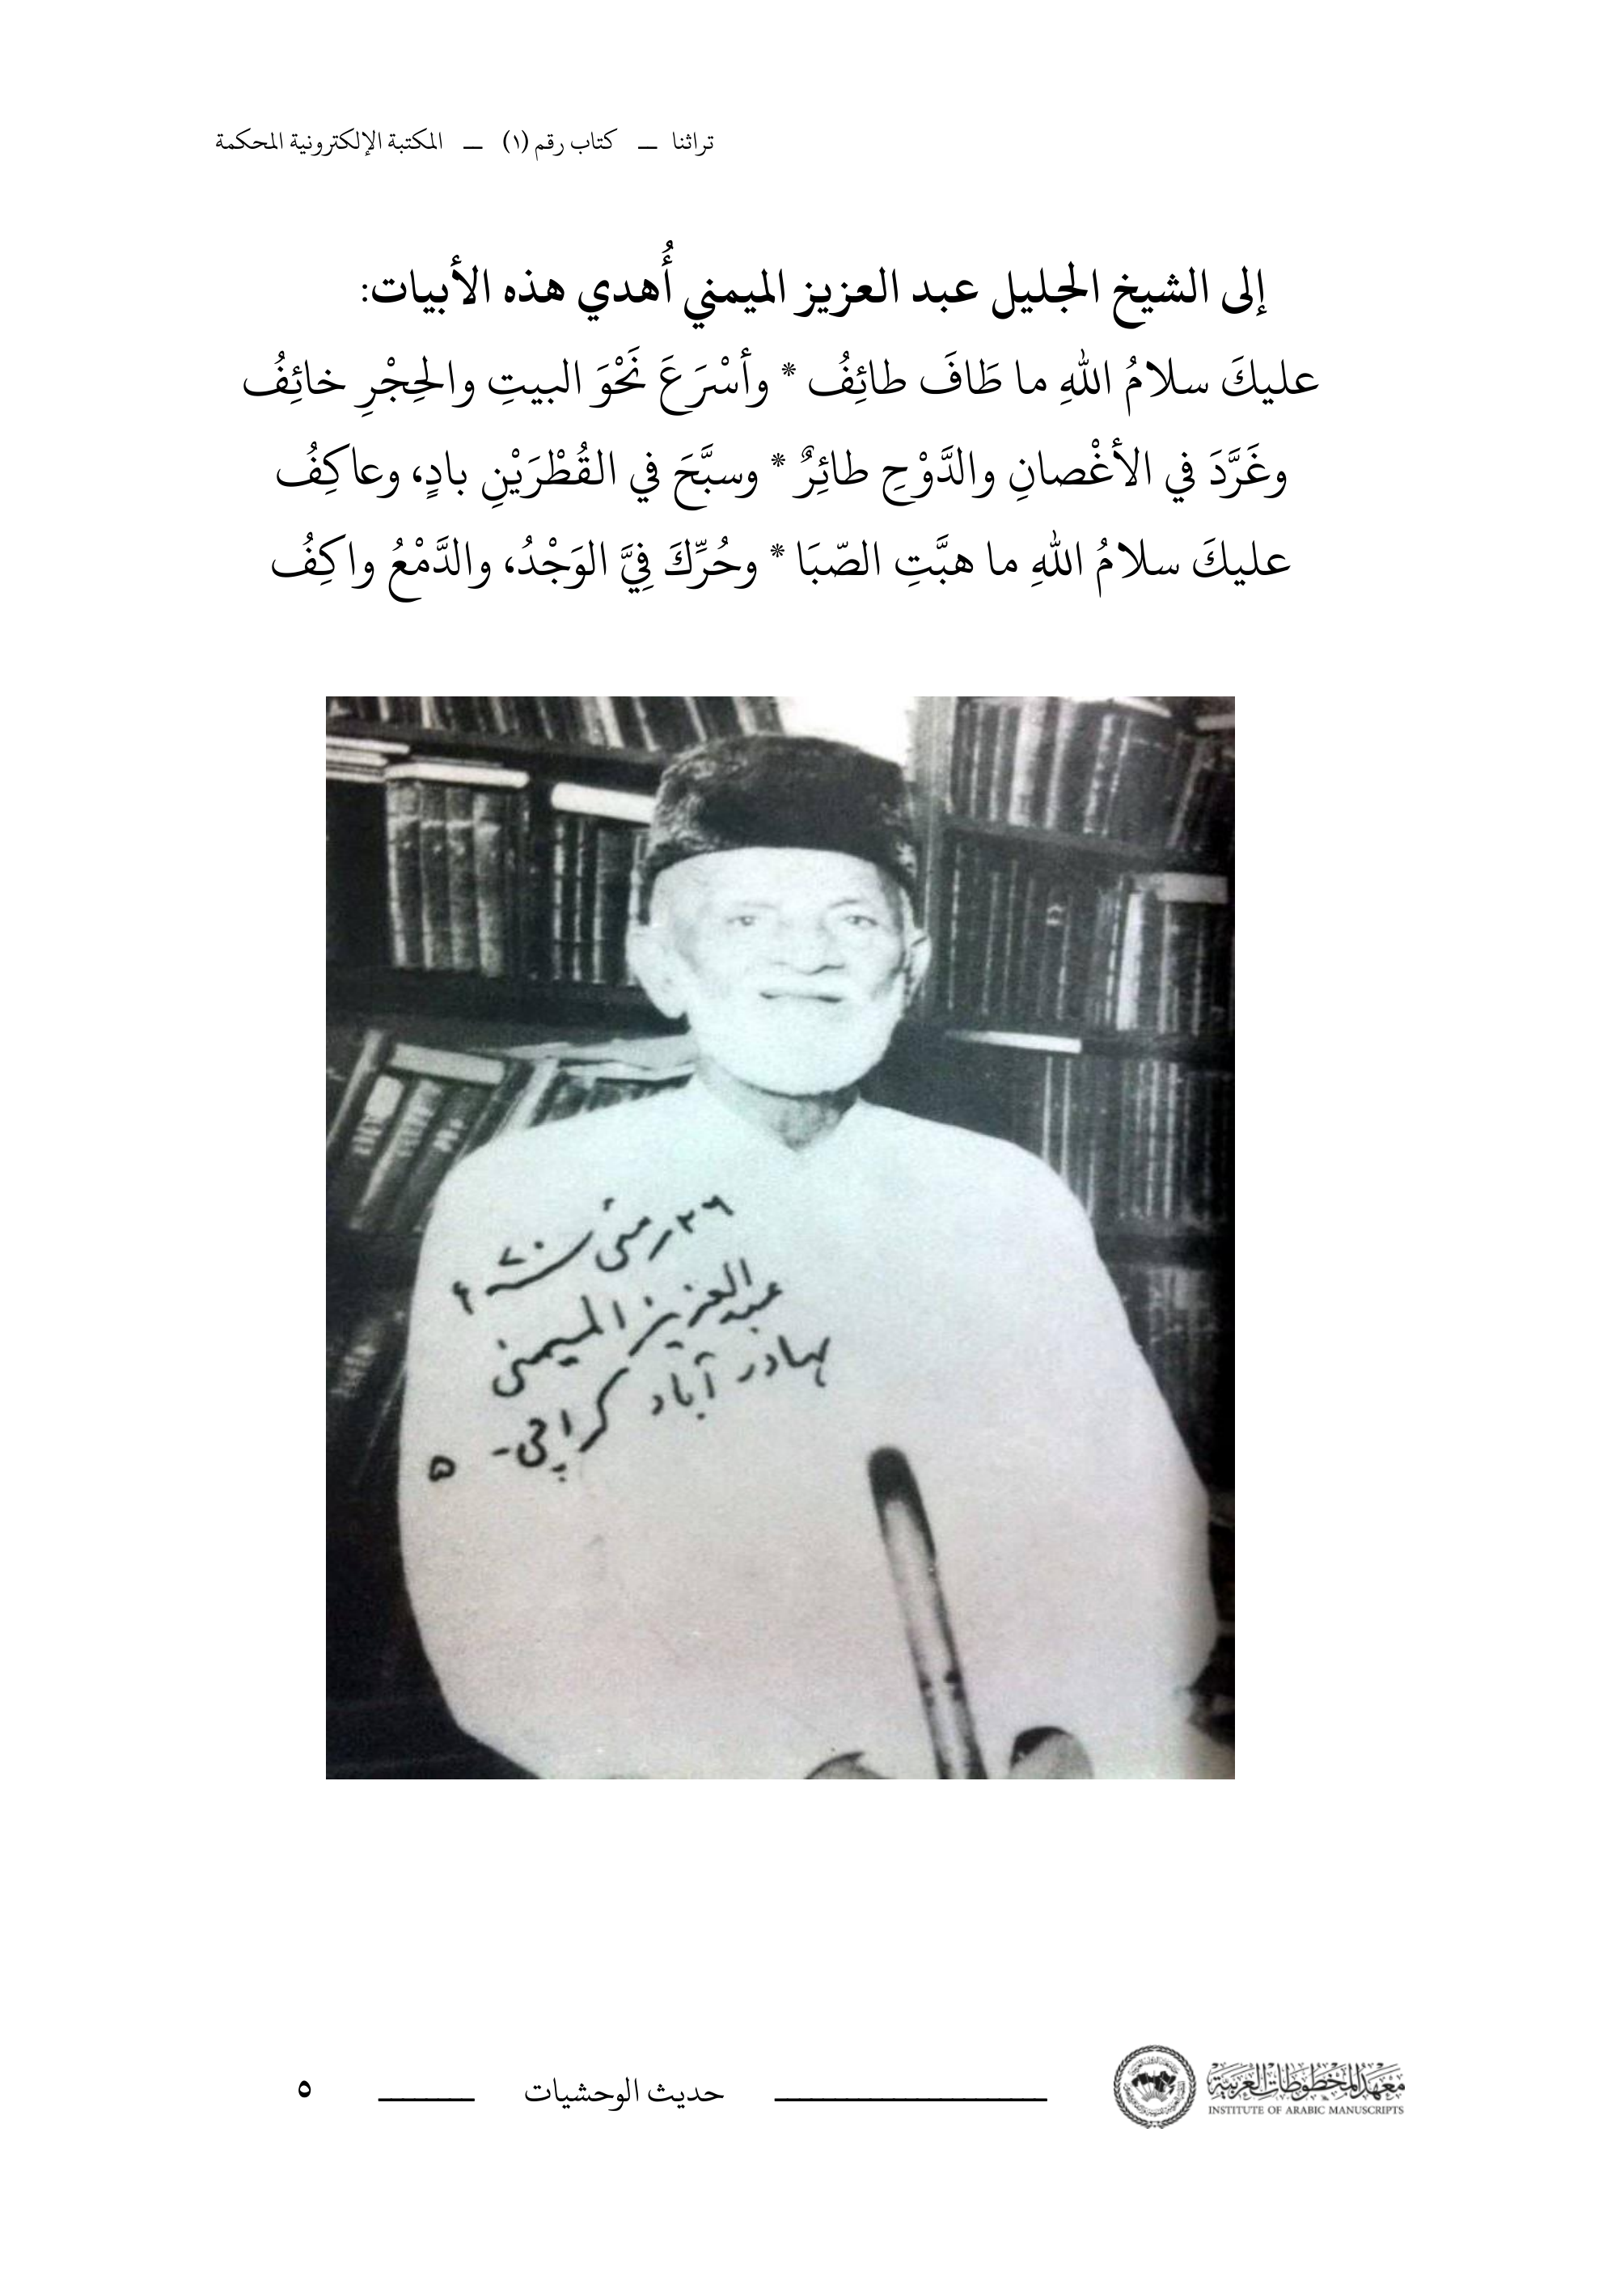 تراثنا — كتاب رقم (١) — المكتبة الإلكترونية المحكمة
إلى الشيخ الجليل عبد العزيز الميمني أُهدي هذه الأبيات:
عليكَ سلامُ اللهِ ما طَافَ طائِفُ * وأسْرَعَ نَحْوَ البيتِ والحِجْرِ خائِفُ
وغَرَّدَ في الأغْصانِ والدَّوْحِ طائِرٌ * وسبَّحَ في القُطْرَيْنِ بادٍ، وعاكِفُ
عليكَ سلامُ اللهِ ما هبَّتِ الصّبَا * وحُرِّكَ فِيَّ الوَجْدُ، والدَّمْعُ واكِفُ
٢٦ر مئی سنہ ٧٠ء
عبد العزيز الميمنى
بہادر آباد کراچی - ۵
معهد المخطوطات العربية
INSTITUTE OF ARABIC MANUSCRIPTS
حديث الوحشيات
٥